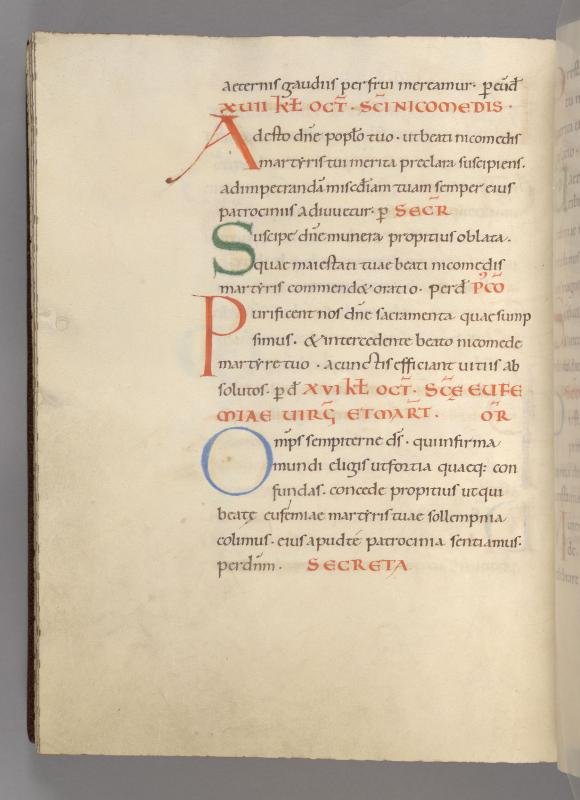 aeternis gaudiis perfrui mereamur· p̄ eūd̄
XVII Kƚ OCT̄· SC̄I NICOMEDIS·
Adesto dn̄e poplo tuo· ut beati nicomedis
martyris tui merita preclara suscipiens·
ad impetrandā misc̄diam tuam semper eius
patrociniis adiuvetur· p̄ SECR̄
Suscipe dn̄e munera propitius oblata·
quae maiestati tuae beati nicomedis
martyris commend& oratio· perd̄ P̄CŌ
Purificent nos dn̄e sacramenta quae sump
simus· & intercedente beato nicomede
martyre tuo· a cunctis efficiant vitiis ab
solutos· p̄ d̄ XVI KƚOCT̄· SC̄Ę EUFE
MIAE UIRḠ ET MART̄· OR̄
Omp̄s sempiterne ds̄· qui infirma
mundi eligis ut fortia quaeq: con
fundas· concede propitius ut qui
beatę eufemiae martyris tuae sollempnia
colimus· eius apud tē patrocinia sentiamus·
per dn̄m· SECRETA